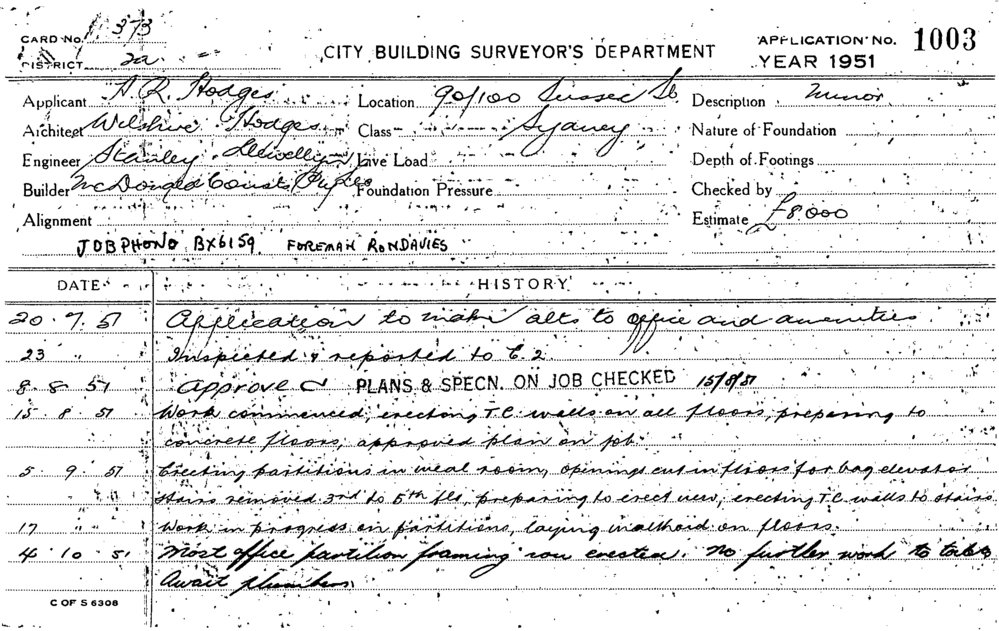 CARD No. 373
CITY BUILDING SURVEYOR'S DEPARTMENT
APPLICATION No. 1003
DISTRICT 2a
YEAR 1951
Applicant A. R. Hodges Location 90/100 Sussex St Description Minor
Architect Wilshire Hodges Class Sydney Nature of Foundation
Engineer Stanley Llewellyn Live Load Depth of Footings
Builder McDonald Consts Pty Ltd Foundation Pressure Checked by
Alignment Estimate £8000
JOB PHONE BX6159 FOREMAN RON DAVIES
DATE HISTORY
20.7.51 Application to make alts to office and amenities
23 " Inspected & reported to C. 2
8.8.51 Approved PLANS & SPECN. ON JOB CHECKED 15/8/51
15.8.51 Work commenced, erecting T.C. walls on all floors, preparing to
concrete floors, approved plan on job.
5.9.51 Erecting partitions in meal room, openings cut in floors for bag elevator
stairs removed 3rd to 5th fls, preparing to erect new, erecting T.C. walls to stairs
17 " " Work in progress on partitions, laying malthoid on floors.
4.10.51 Most office partition framing now erected. No further work to take
Await plumbers.
C OF S 6308